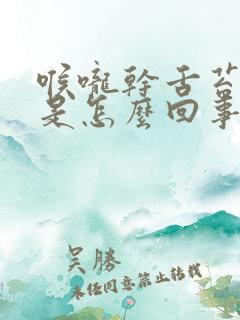 喉嚨幹舌苔
是怎麼回事
吴勝
未经同意禁止转载